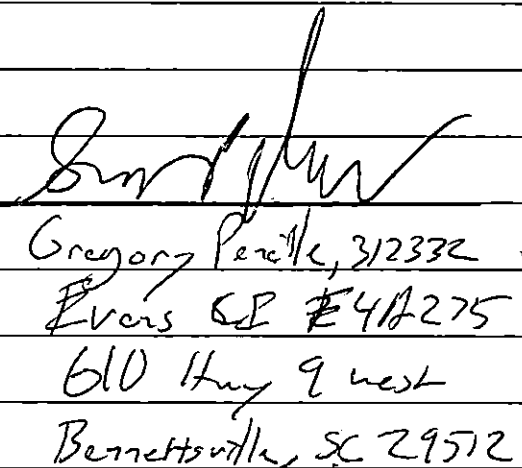 Gregory Pencille, 312332
Evans CI E4A275
610 Hwy 9 west
Bennettsville, SC 29512